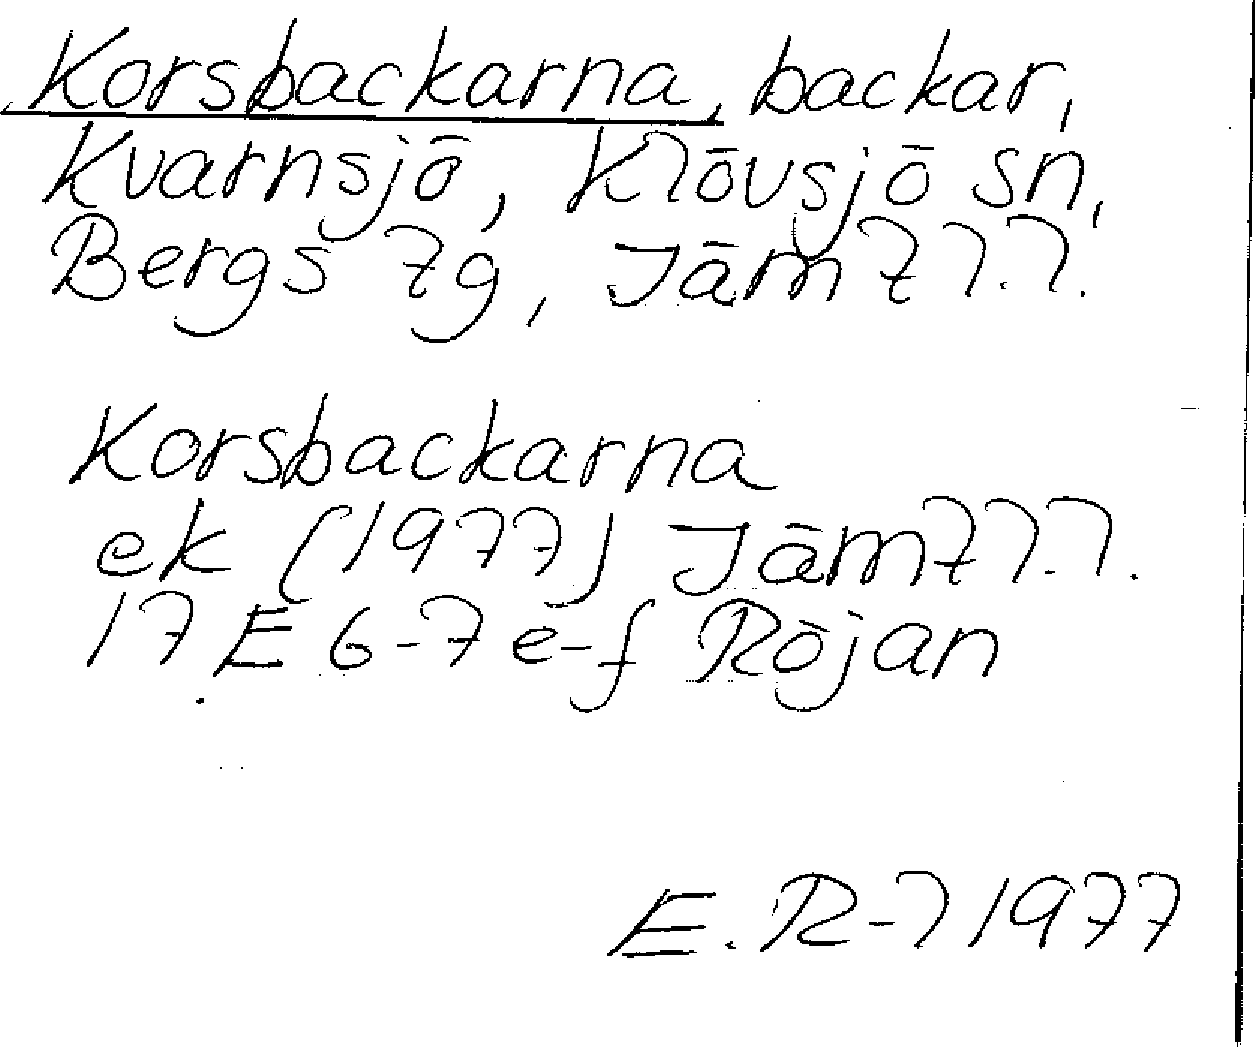 Korsbackarna, backar,
Kvarnsjö, Klövsjö sn,
Bergs tg, Jämtl.l.
Korsbackarna
ek (1977) Jämtl.l.
17E 6-7 e-f Röjan
E.R-l 1977